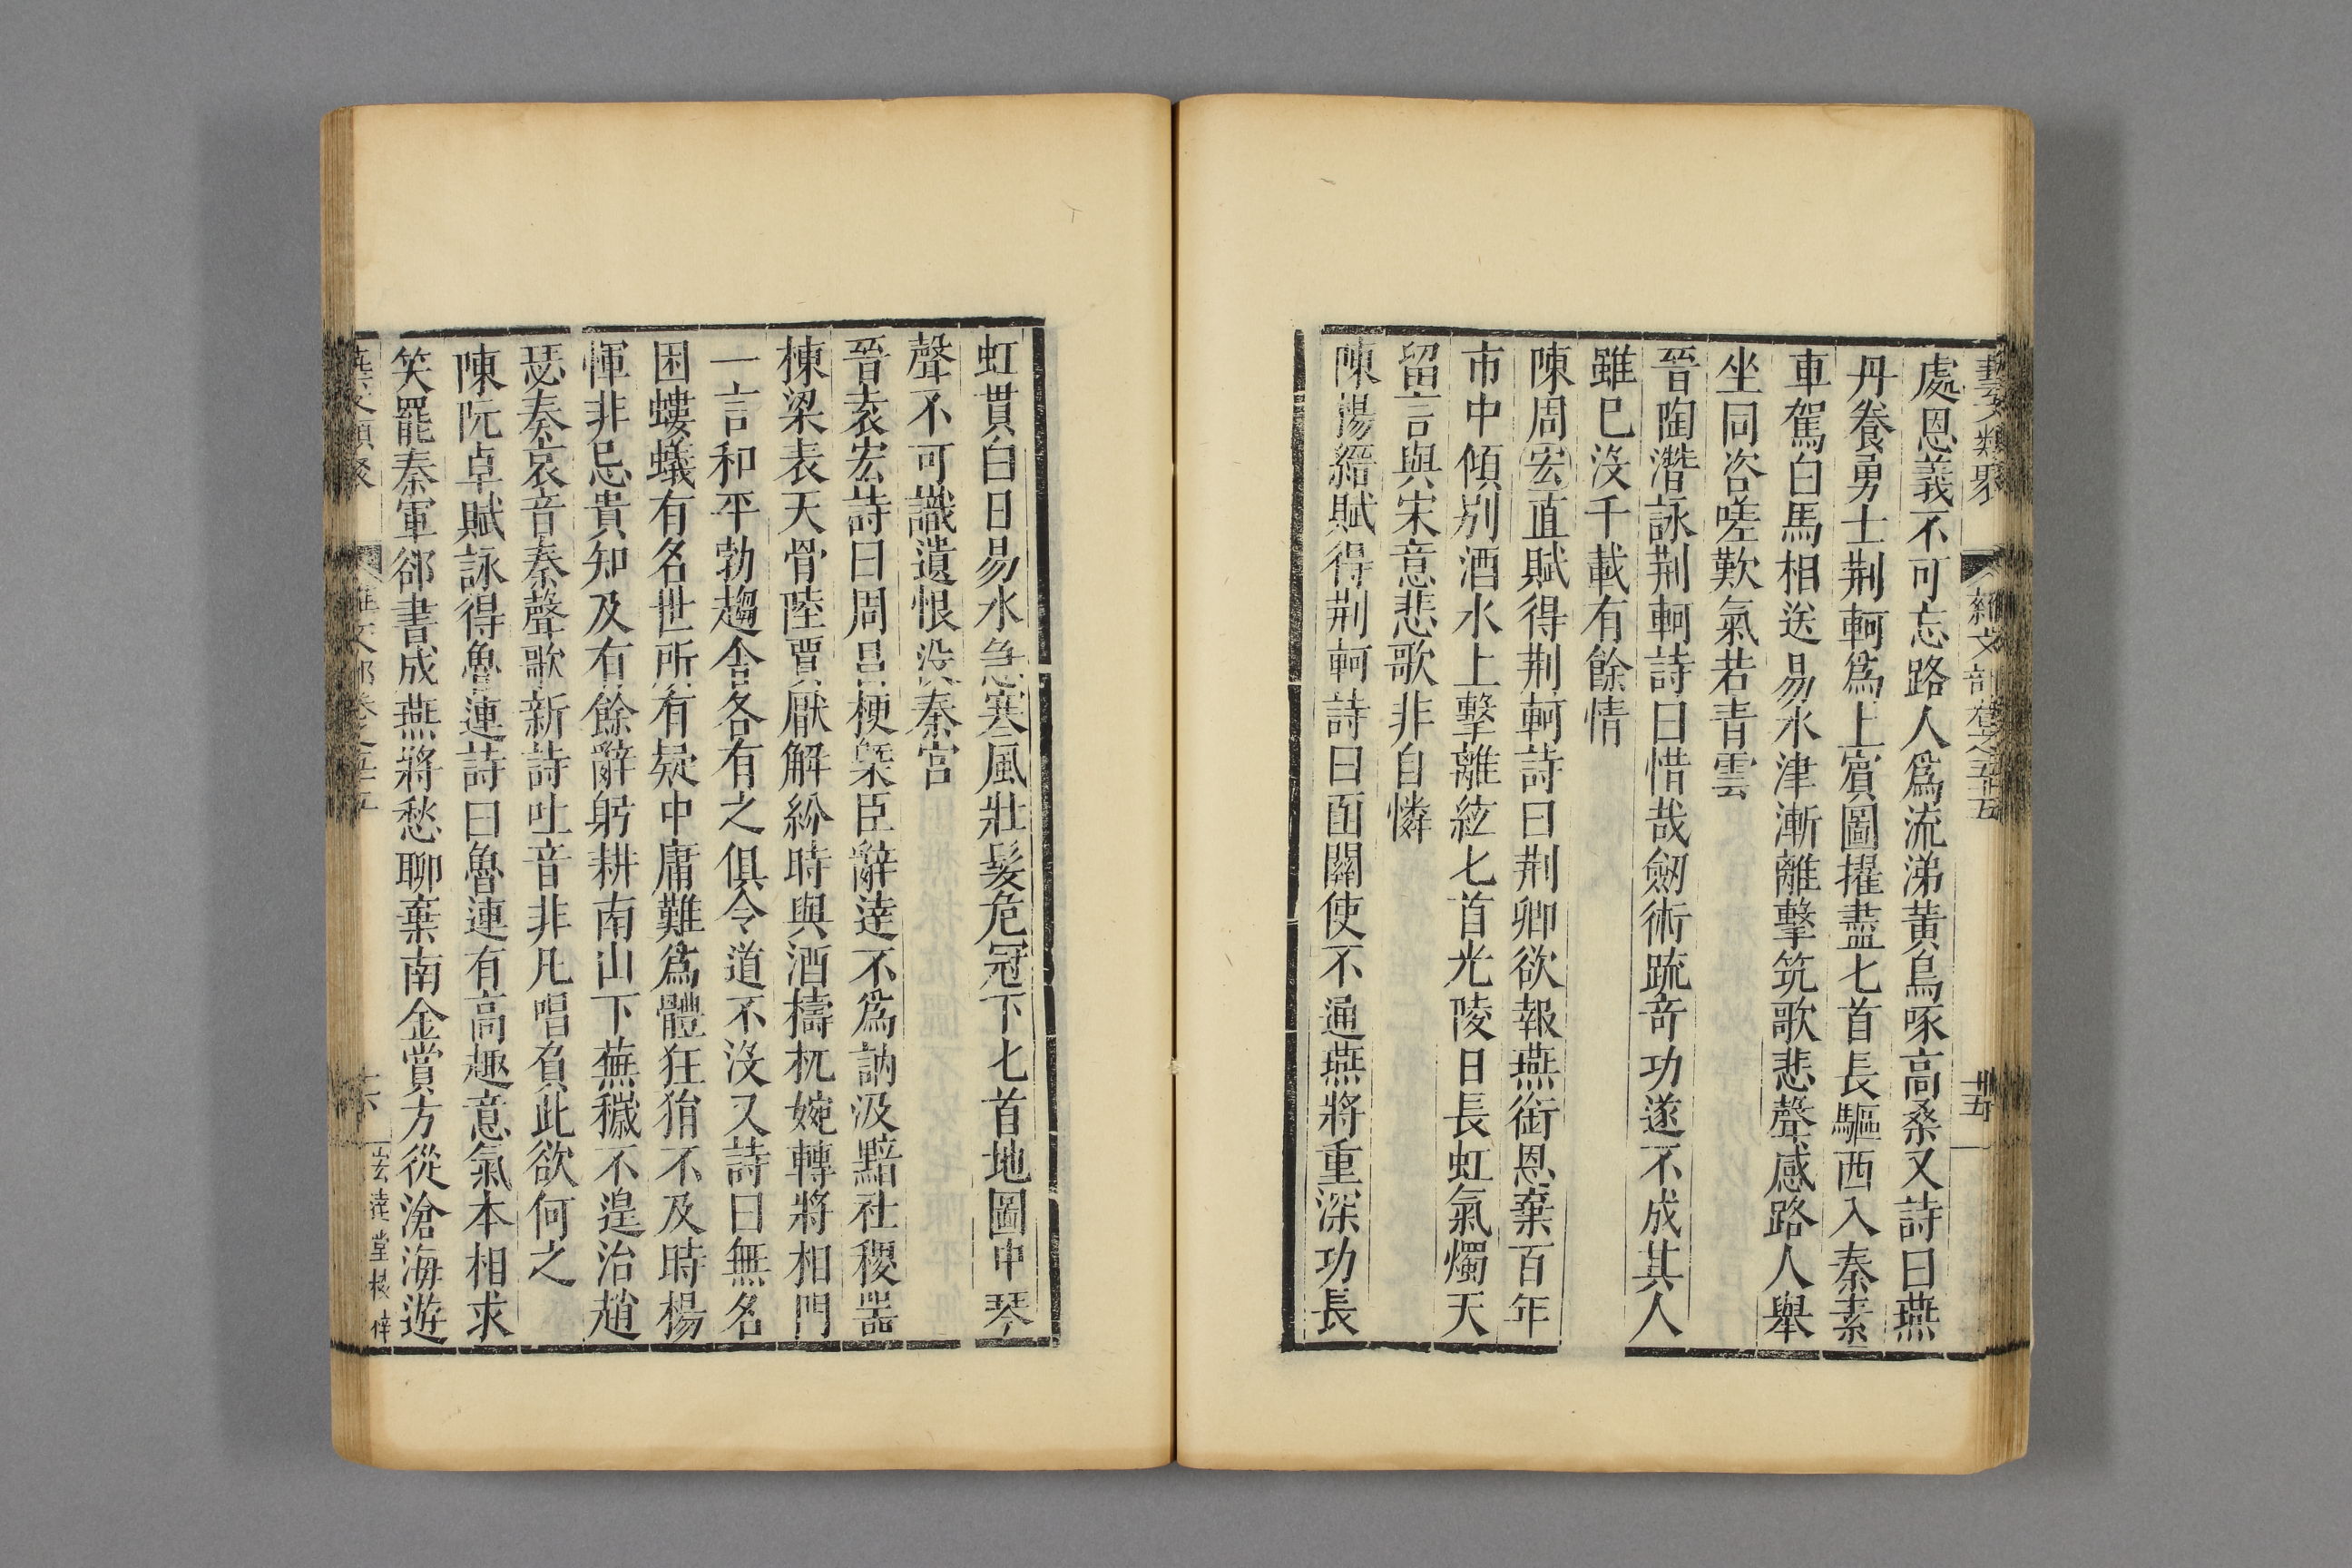 藝文類聚 雜文部卷之五十五 十五
處恩義不可忘路人爲流涕黃鳥啄高桑又詩曰燕
丹養勇士荆軻爲上賓圖擢盡匕首長驅西入秦素
車駕白馬相送易水津漸離擊筑歌悲聲感路人舉
坐同咨嗟歎氣若青雲
晉陶潛詠荆軻詩曰惜哉劒術疏奇功遂不成其人
雖已沒千載有餘情
陳周宏直賦得荆軻詩曰荆卿欲報燕銜恩棄百年
市中傾別酒水上擊離絃匕首光陵日長虹氣燭天
留言與宋意悲歌非自憐
陳楊縉賦得荆軻詩曰函關使不通燕將重深功長
虹貫白日易水急寒風壯髮危冠下匕首地圖中琴
聲不可識遺恨没秦宮
晉袁宏詩曰周昌梗槩臣辭達不爲訥汲黯社稷器
棟梁表天骨陸賈厭解紛時與酒檮杌婉轉將相門
一言和平勃趨舍各有之俱令道不沒又詩曰無名
困螻蟻有名世所疑中庸難爲體狂狷不及時楊
惲非忌貴知及有餘辭躬耕南山下蕪穢不遑治趙
瑟奏哀音秦聲歌新詩吐音非凡唱負此欲何之
陳阮卓賦詠得魯連詩曰魯連有高趣意氣本相求
笑罷秦軍郤書成燕將愁聊棄南金賞方從滄海遊
藝文類聚 雜文部卷之五十五 十六